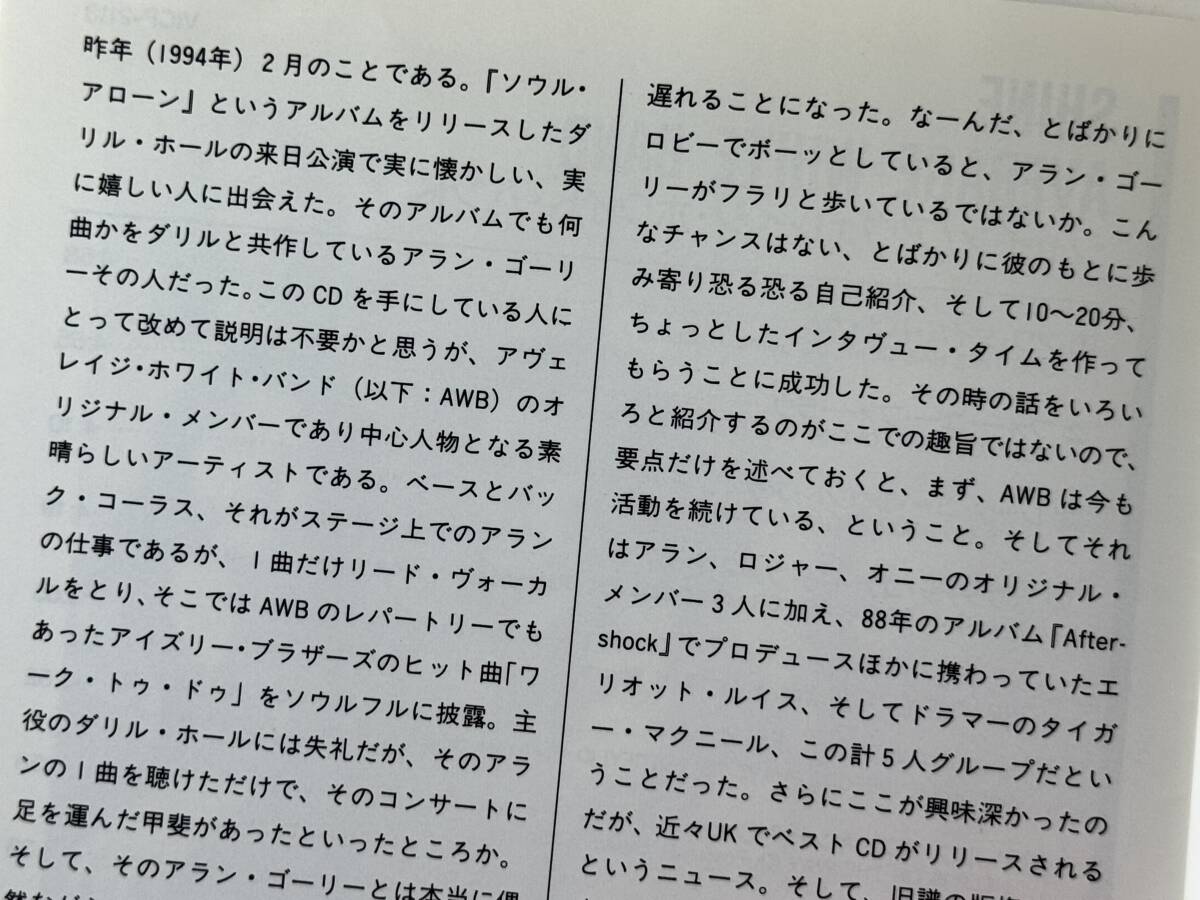 昨年（1994年）2月のことである。『ソウル・
アローン』というアルバムをリリースしたダ
リル・ホールの来日公演で実に懐かしい、実
に嬉しい人に出会えた。そのアルバムでも何
曲かをダリルと共作しているアラン・ゴーリ
ーその人だった。このCDを手にしている人に
とって改めて説明は不要かと思うが、アヴェ
レイジ・ホワイト・バンド（以下：AWB）のオ
リジナル・メンバーであり中心人物となる素
晴らしいアーティストである。ベースとバッ
ク・コーラス、それがステージ上でのアラン
の仕事であるが、1曲だけリード・ヴォーカ
ルをとり、そこではAWBのレパートリーでも
あったアイズリー・ブラザーズのヒット曲「ワ
ーク・トゥ・ドゥ」をソウルフルに披露。主
役のダリル・ホールには失礼だが、そのアラ
ンの1曲を聴けただけで、そのコンサートに
足を運んだ甲斐があったといったところか。
そして、そのアラン・ゴーリーとは本当に偶
遅れることになった。なーんだ、とばかりに
ロビーでボーッとしていると、アラン・ゴー
リーがフラリと歩いているではないか。こん
なチャンスはない、とばかりに彼のもとに歩
み寄り恐る恐る自己紹介、そして10〜20分、
ちょっとしたインタヴュー・タイムを作って
もらうことに成功した。その時の話をいろい
ろと紹介するのがここでの趣旨ではないので、
要点だけを述べておくと、まず、AWBは今も
活動を続けている、ということ。そしてそれ
はアラン、ロジャー、オニーのオリジナル・
メンバー3人に加え、88年のアルバム『After-
shock』でプロデュースほかに携わっていたエ
リオット・ルイス、そしてドラマーのタイガ
ー・マクニール、この計5人グループだとい
うことだった。さらにここが興味深かったの
だが、近々UKでベストCDがリリースされる
というニュース。そして、旧譜の